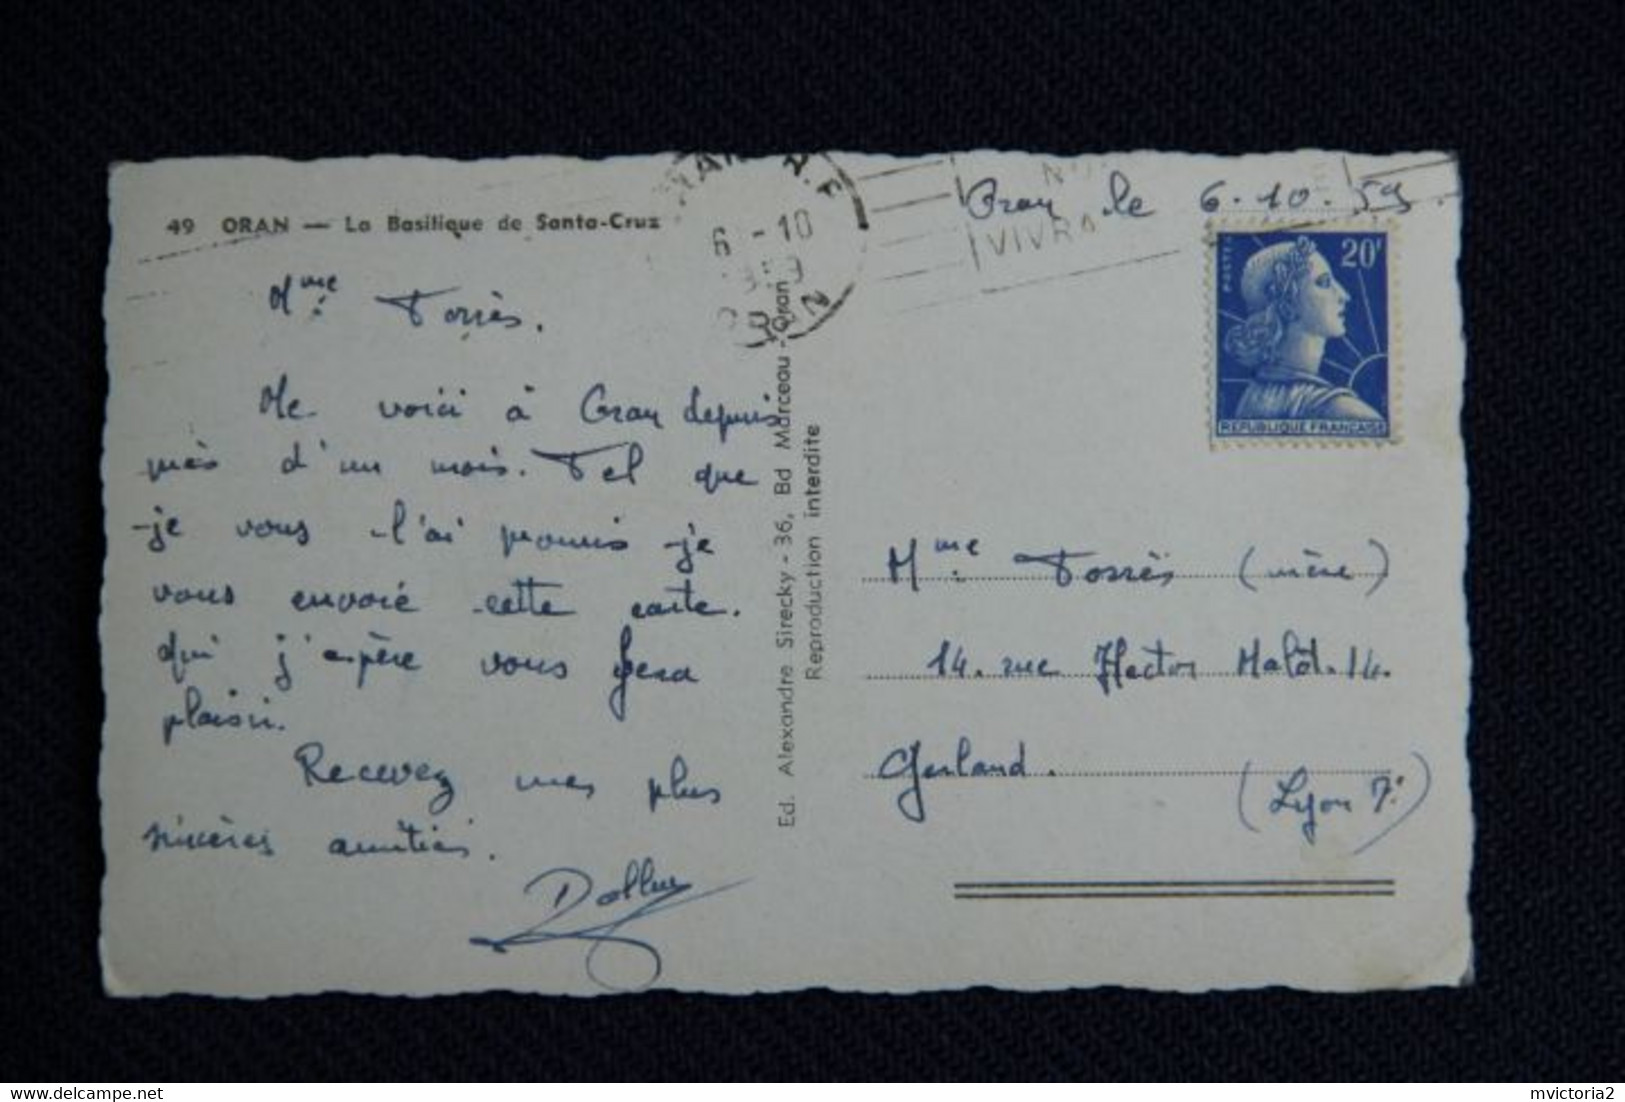 49 ORAN — La Basilique de Santa-Cruz
6 - 10
ORAN
VIVRA
Oran le 6.10.59.
POSTES
20F
REPUBLIQUE FRANÇAISE
Mme Torrès.
Me voici à Oran depuis
près d'un mois. Tel que
je vous l'ai promis je
vous envoie cette carte.
qui j'espère vous fera
plaisir.
Recevez mes plus
sincères amitiés.
Ed. Alexandre Sirecky - 36, Bd Marceau - Oran
Reproduction interdite
Mme Torrès (mère)
14. rue Hector Malot. 14.
Gerland.
(Lyon 7e)
delcampe.net
mvictoria2